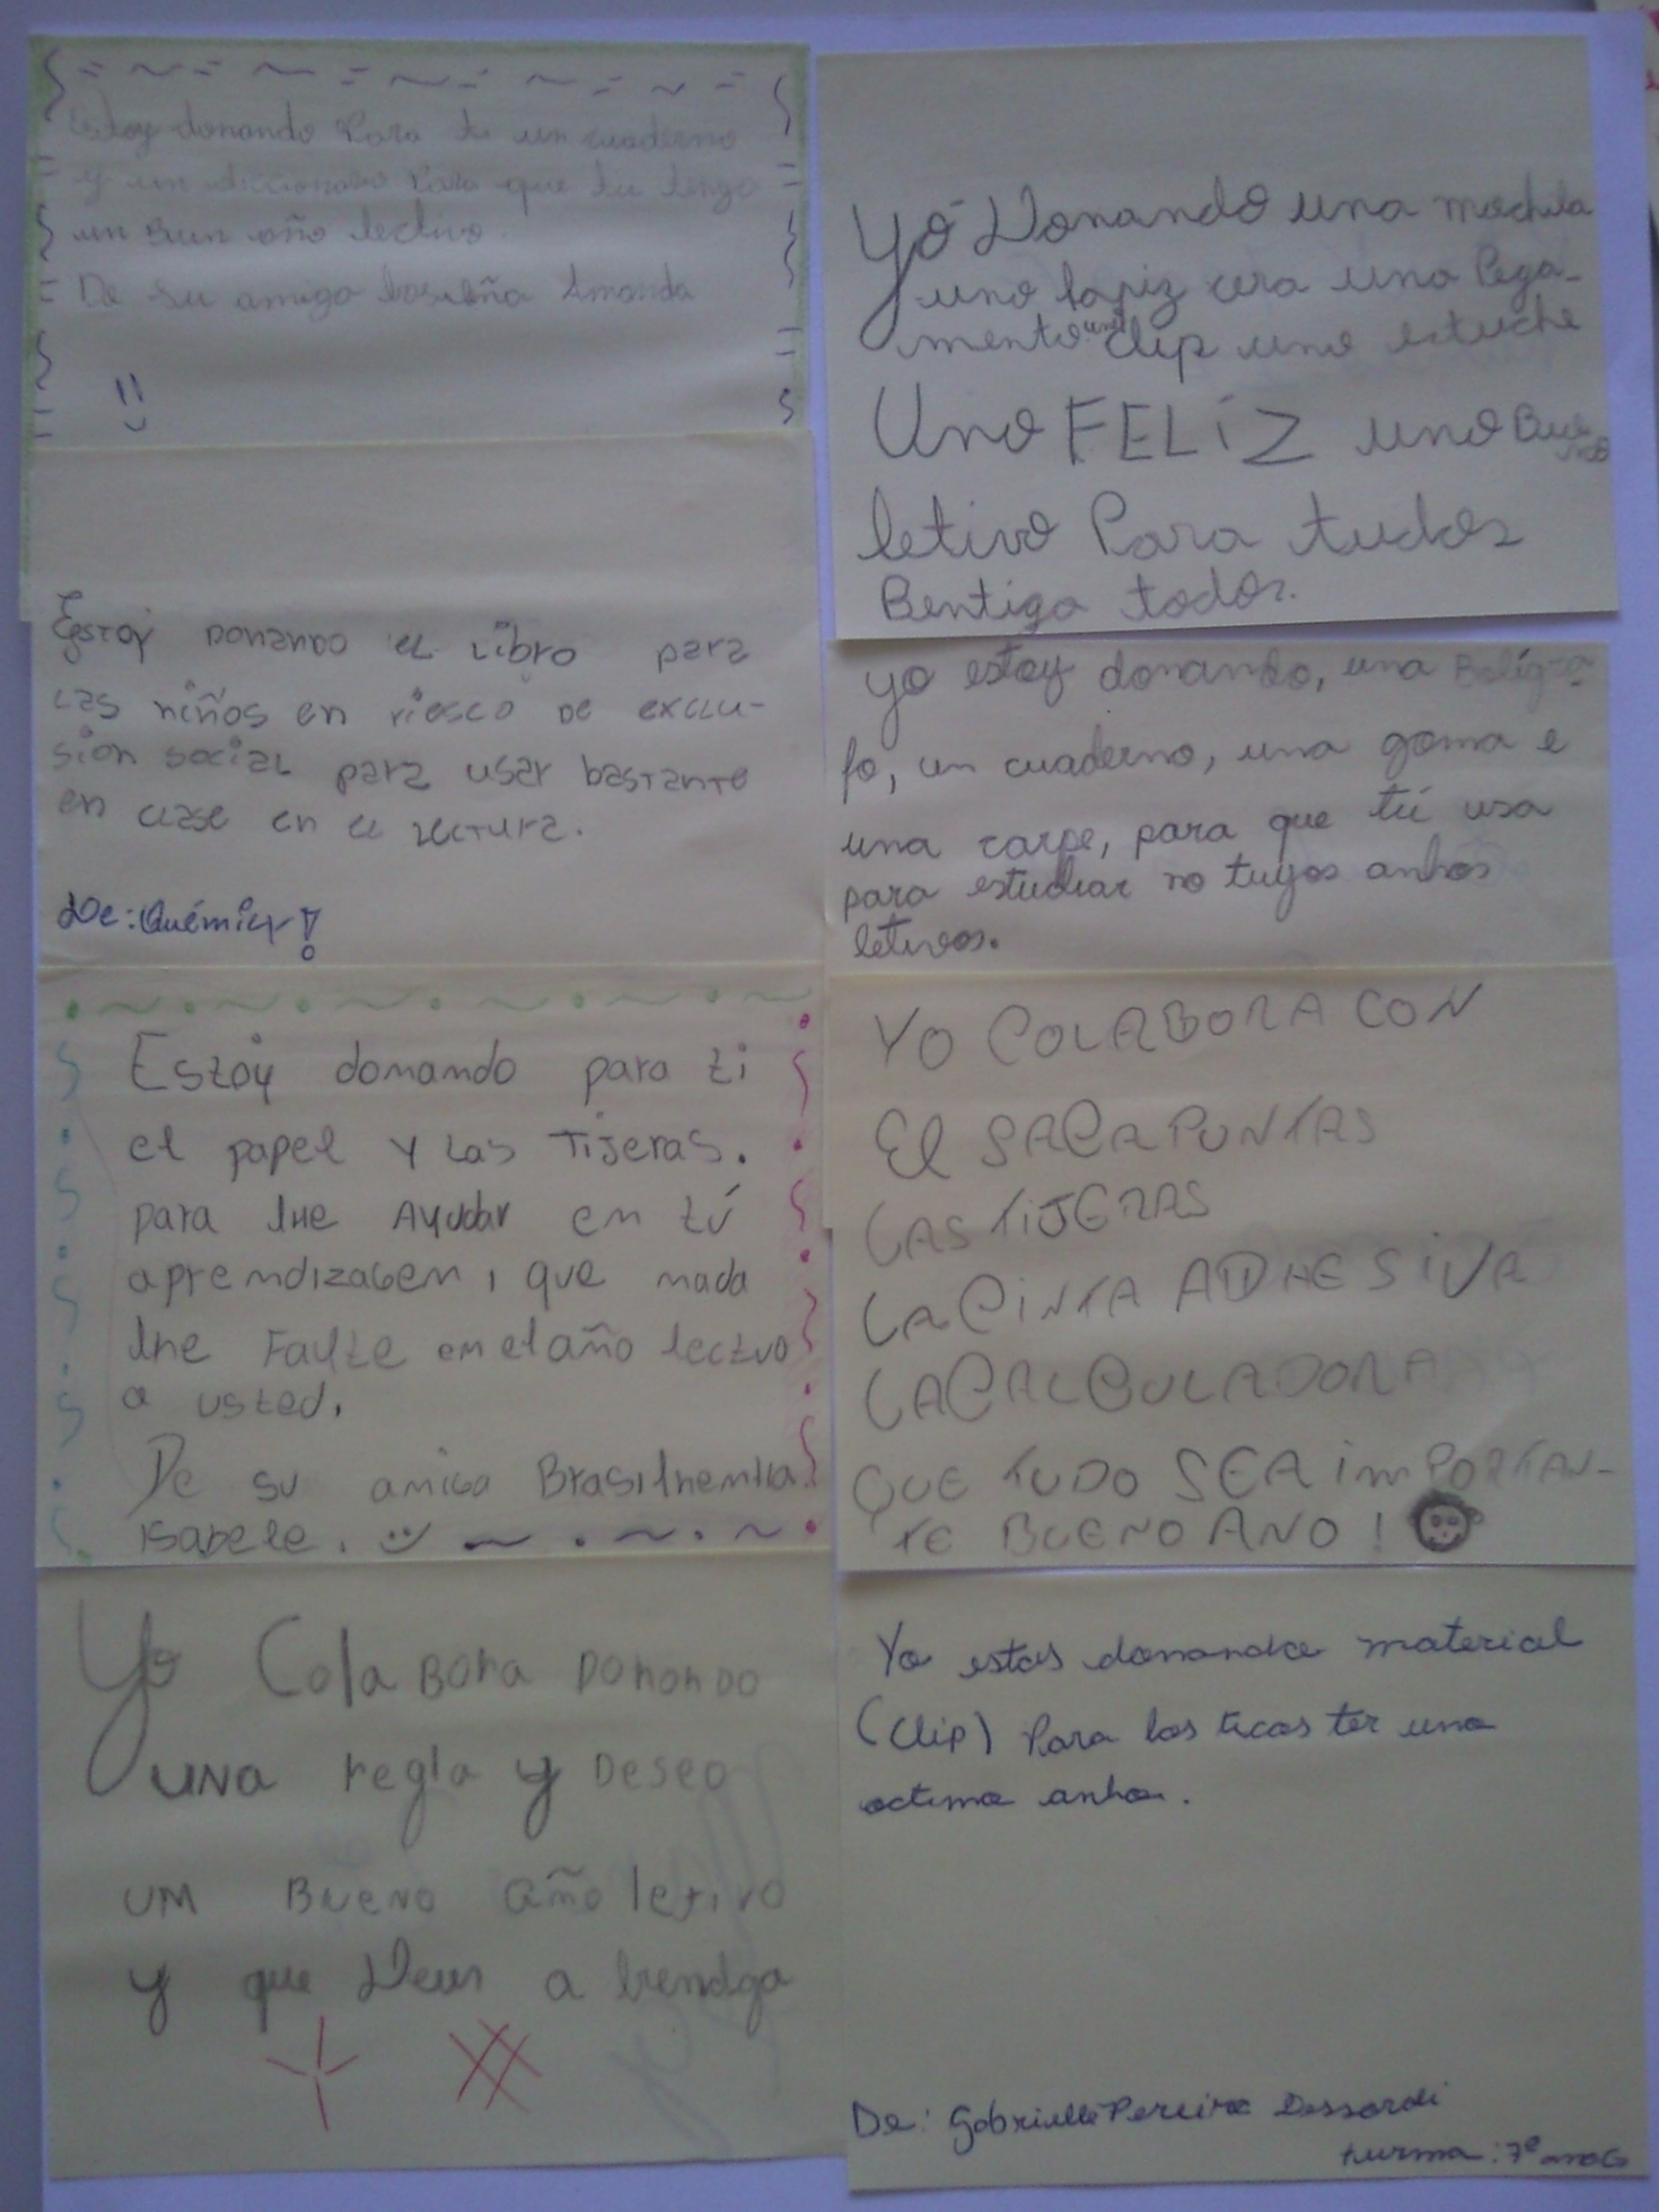 Estoy donando Para tu un cuaderno
y un diccionario Para que tu tengo
un Buen año lectivo.
De su amigo brasileña Amanda
Estoy Donando el Libro para
Las niños en riesco De exclu-
sion social para usar bastante
en clase en el Lectura.
De: Quémily!
Estoy donando para ti
el papel y Las Tijeras.
para lhe Ayudar em tú
aprendizagem, que nada
lhe Faulte em el año lectvo
a usted.
De su amiga Brasilhemha
Isabele.
Yo ColaBora Donondo
UNA regla y Deseo
UM Bueno año letivo
y que Deus a bendga
Yo Donando una mochila
uno lapiz cera una Pega-
mento uno clip uno estuche
Uno FELíZ uno Bueno
letivo Para tudos
Bentiga todos.
yo estoy donando, una Bolígra-
fo, un cuaderno, una goma e
una carpe, para que tú usa
para estudiar no tuyos anhos
letivos.
YO COLABORA CON
El SACAPUNTAS
LAS TIJERAS
LA CINTA ADHESIVA
LA CALCULADORA
QUE TUDO SEA imPORTAN-
TE BUENO ANO!
Yo estas donando material
(Clip) Para los ticos ter uno
octimo anho.
De: Gabrielle Pereira Dassordi
turma: 7º ano G